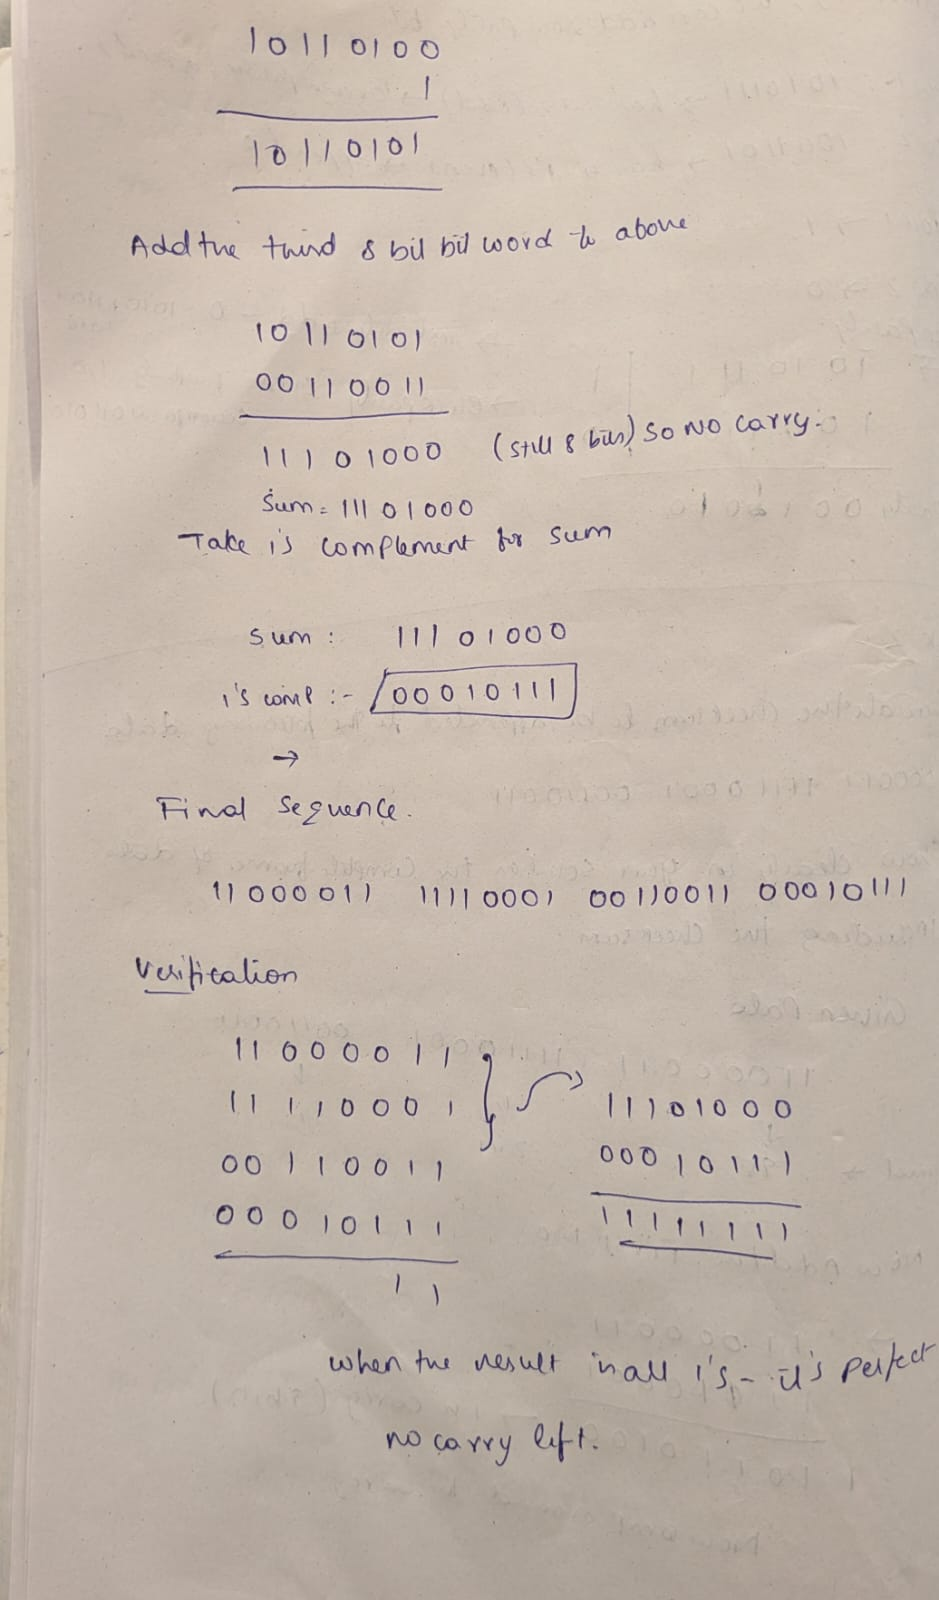 10110100
1
10110101
Add the third 8 bit bit word to above
10110101
00110011
11101000 (still 8 bits) so NO carry.
Sum = 11101000
Take 1's complement for sum
sum : 11101000
1's comp :- 00010111
→
Final Sequence.
11000011 11110001 00110011 00010111
Verification
11000011
11110001 11101000
00110011 00010111
00010111 11111111
11
when the result in all 1's - it's perfect
no carry left.